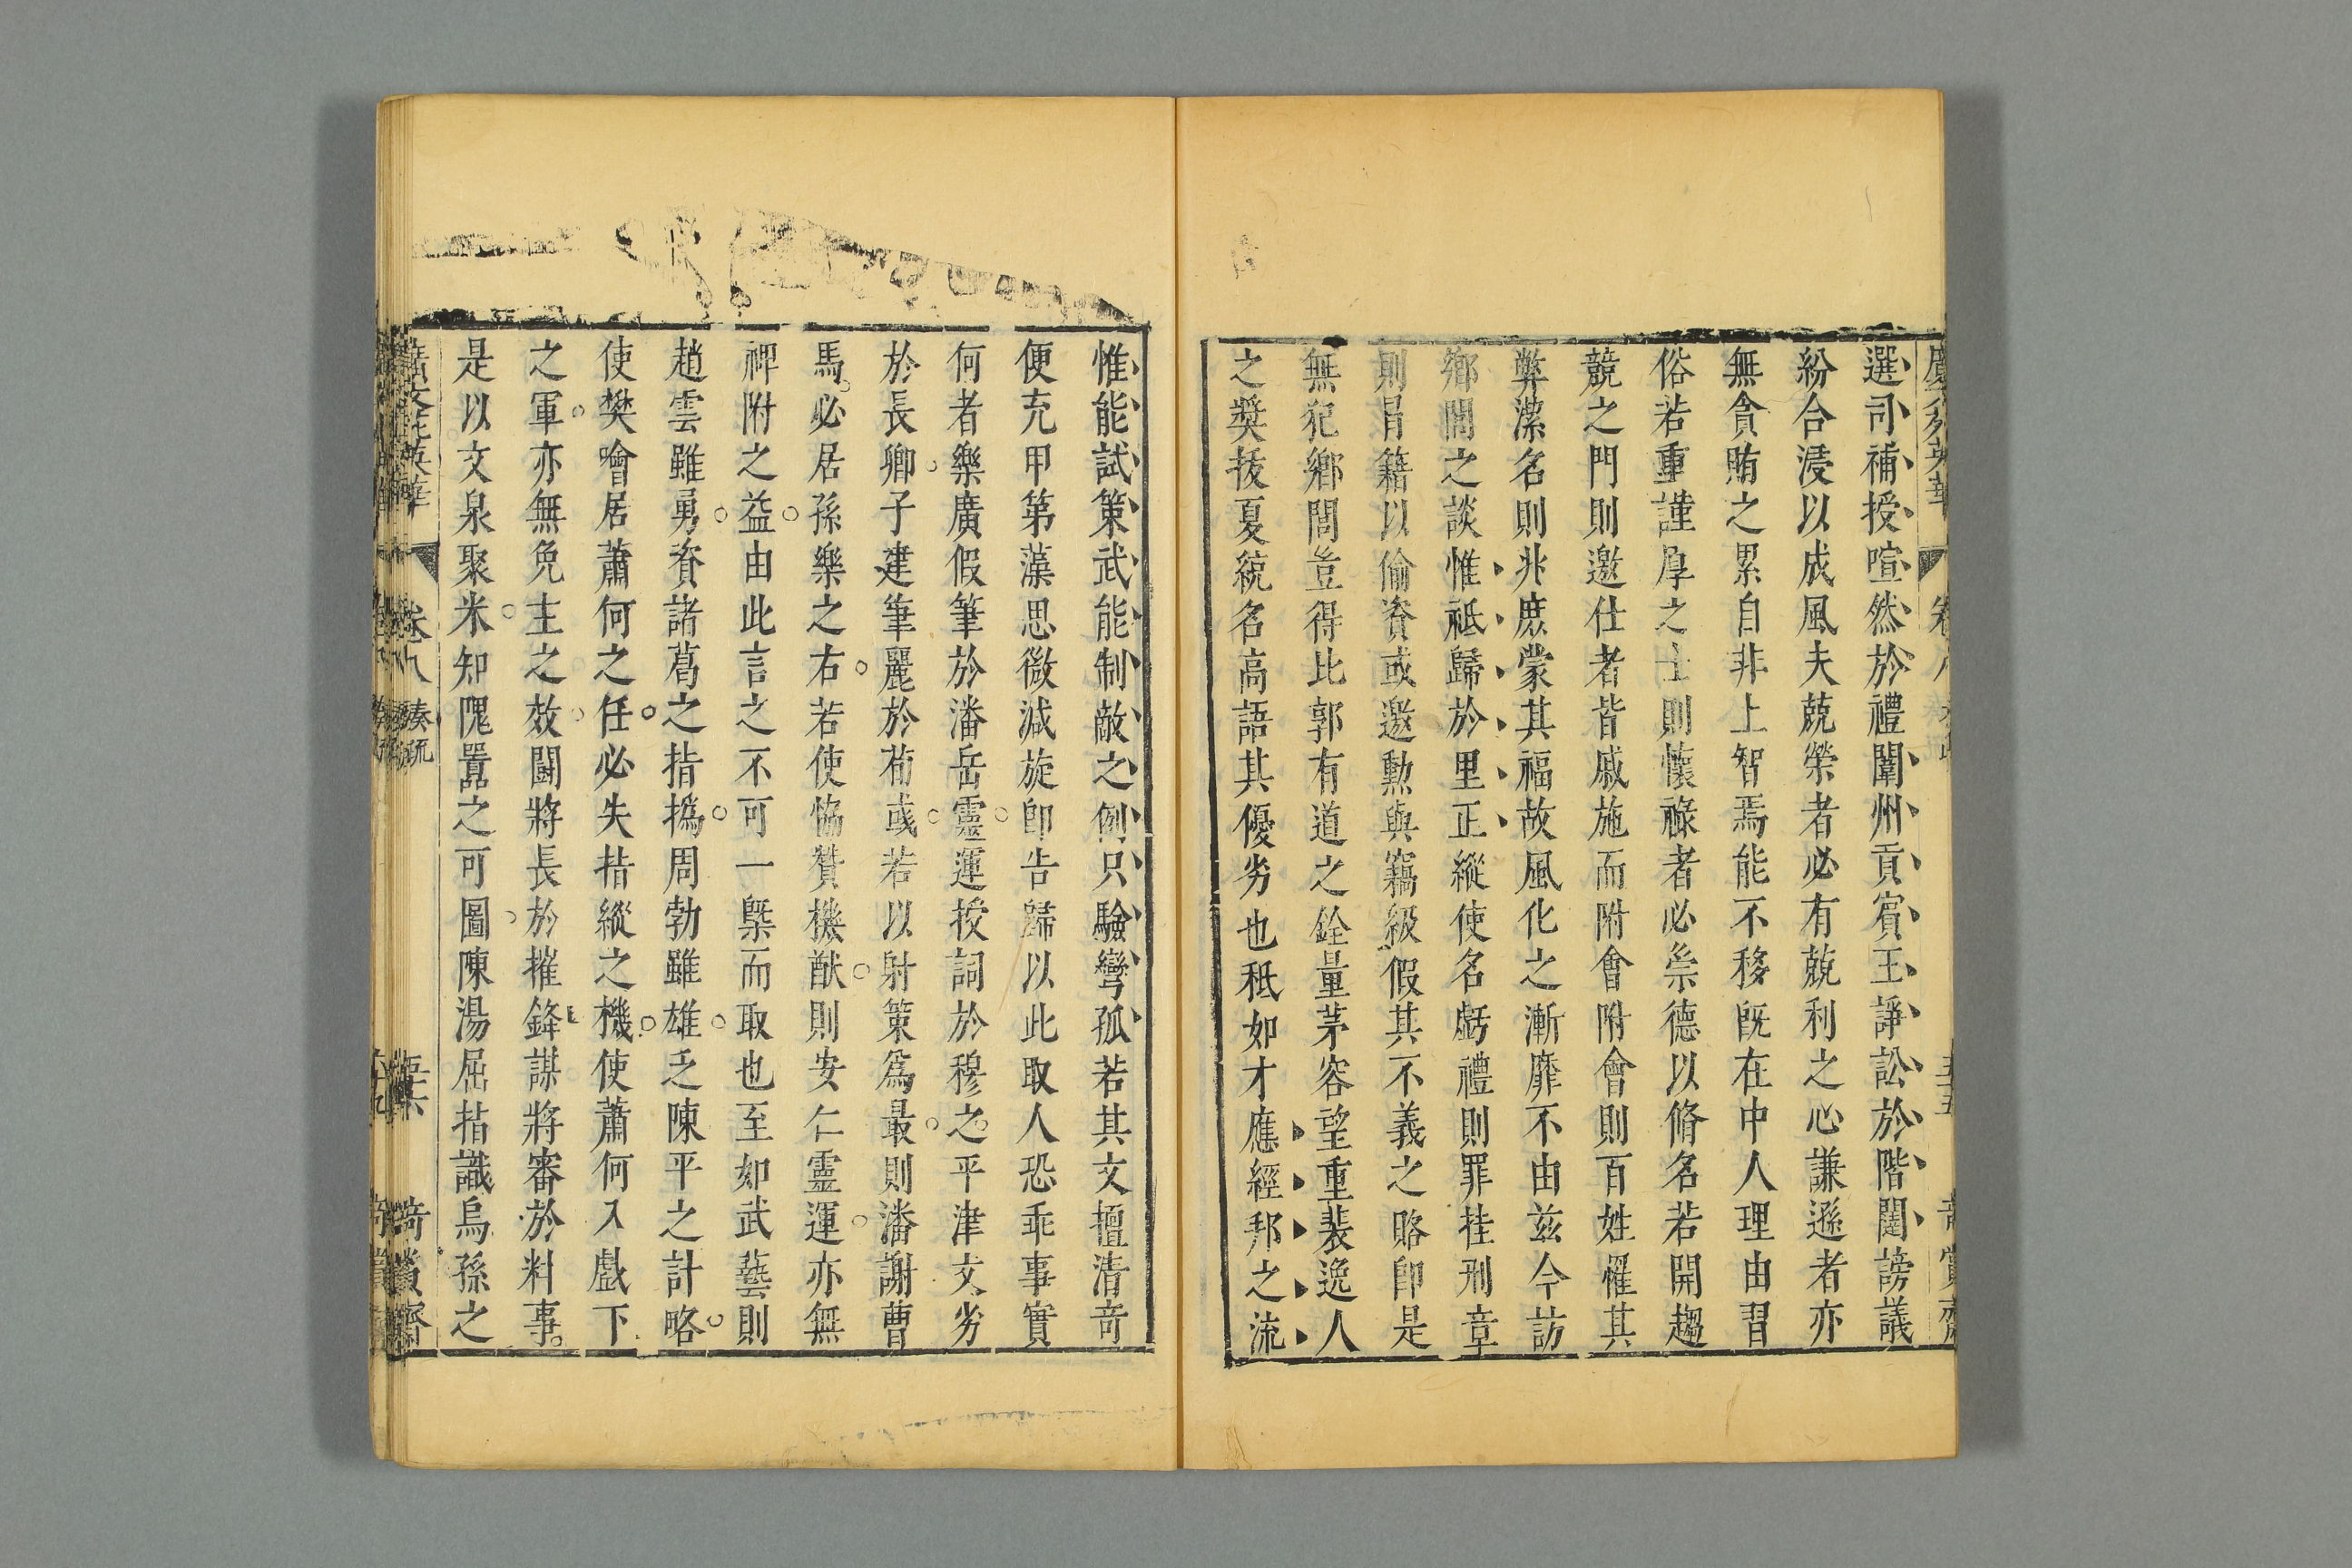 選司補授喧然於禮闈州貢賓王諍訟於階闥謗議
紛合浸以成風夫兢榮者必有兢利之心謙遜者亦
無貪賄之累自非上智焉能不移旣在中人理由習
俗若重謹厚之士則懷祿者必崇德以脩名若開趨
競之門則邀仕者皆戚施而附會附會則百姓罹其
弊潔名則兆庶蒙其福故風化之漸靡不由玆今訪
鄉閭之談惟祗歸於里正縱使名虧禮則罪挂刑章
則冒籍以偷資或邀勲與竊級假其不義之賂卽是
無犯鄉閭豈得比郭有道之銓量茅容望重裴逸人
之奬拔夏統名高語其優劣也秪如才應經邦之流
惟能試策武能制敵之例只驗彎孤若其文擅清奇
便充甲第藻思微減旋卽告歸以此取人恐乖事實
何者樂廣假筆於潘岳靈運授詞於穆之平津文劣
於長卿子建筆麗於荀彧若以射策爲最則潘謝曹
馬必居孫樂之右若使恊贊機猷則安仁靈運亦無
裨附之益由此言之不可一槩而取也至如武藝則
趙雲雖勇資諸葛之指撝周勃雖雄乏陳平之計略
使樊噲居蕭何之任必失指縱之機使蕭何入戲下
之軍亦無免主之效鬪將長於摧鋒謀將審於料事
是以文泉聚米知隗囂之可圖陳湯屈指識烏孫之
卷八 奏疏